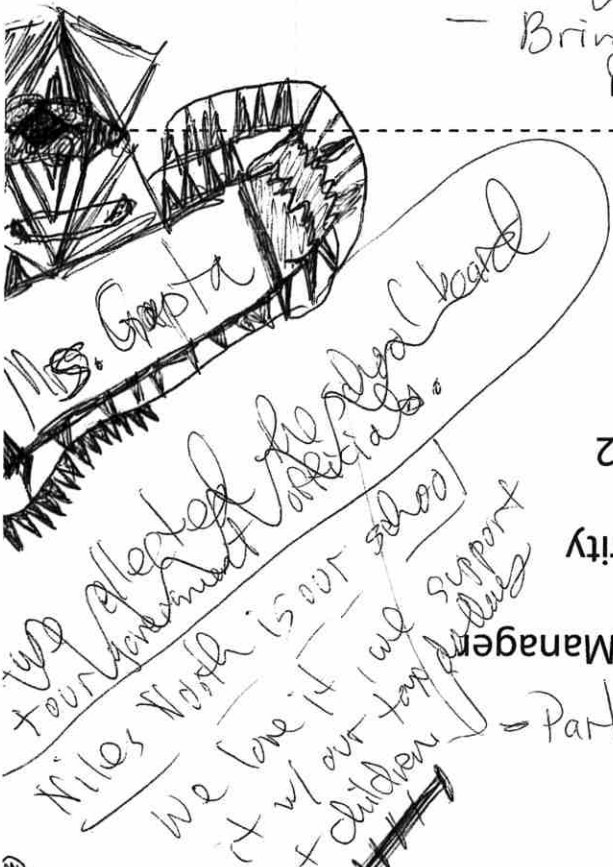 - Brin
Ms. Gupta
we elected the school board
+ our government officials.
Niles North is our school
We love it, we support
it w/ our tax dollars
+ children
2
rity
Manager
- Part